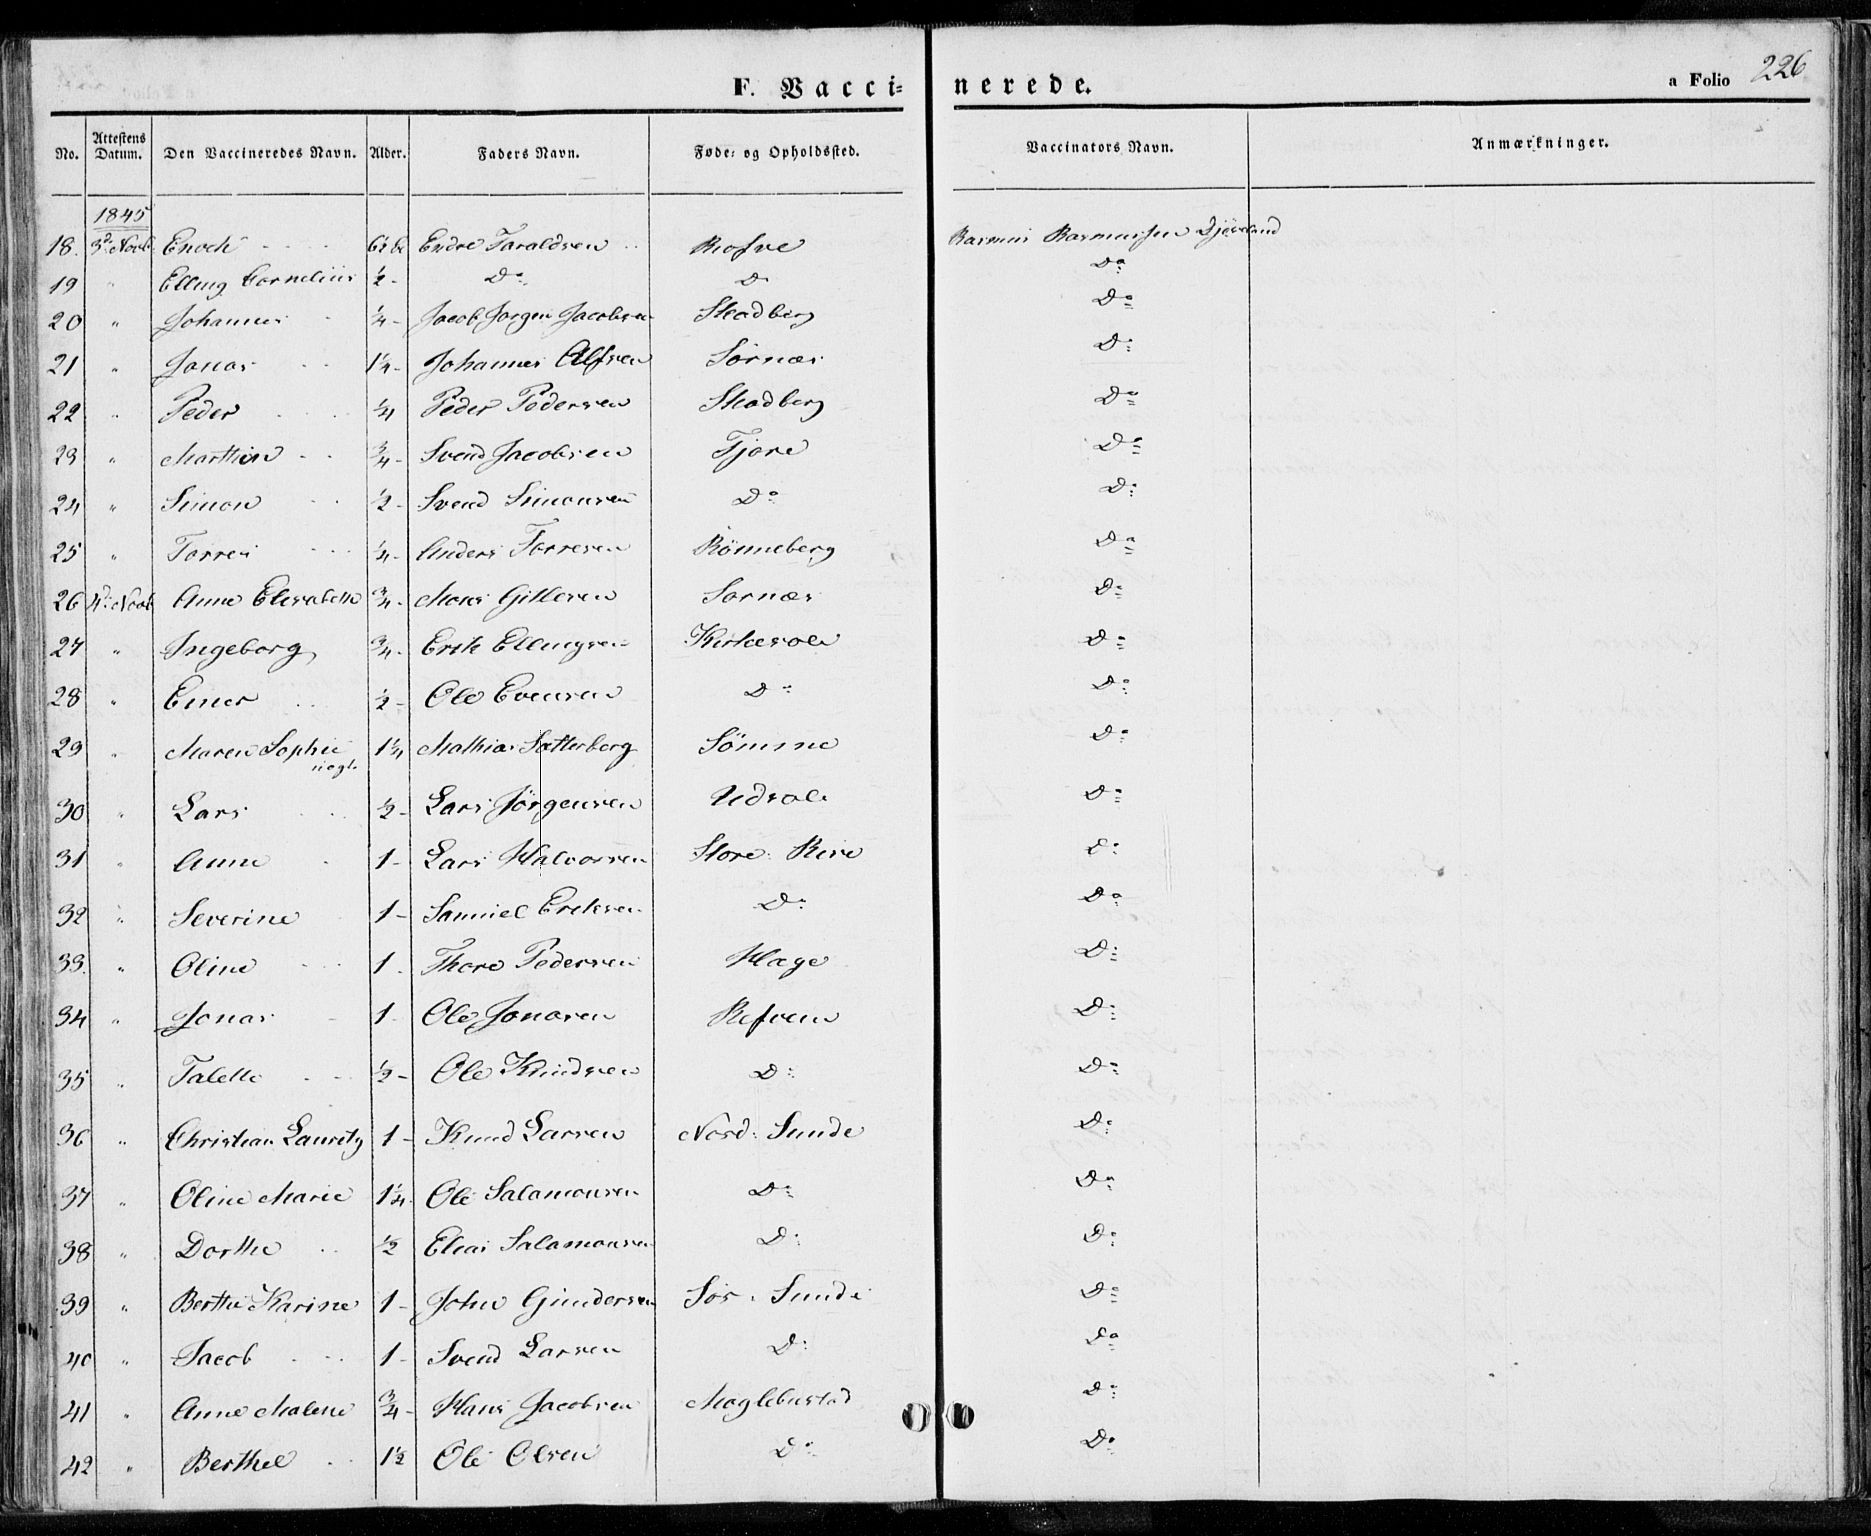 F. Vaccinerede.
a Folio 226
No. Attestens Datum. Den Vaccineredes Navn. Alder. Faders Navn. Føde- og Opholdssted. Vaccinators Navn. Anmærkninger.
1845
18. 3d Novb. Enoch Endre Taraldsen Rasmus Rasmussen
19 " Elling Cornelius ½ - Do D Do
20 " Johannes ¼ - Jacob Jørgen Jacobsen Skadberg Do
21 " Jonas 1¼ - Johannes Alfsen Sørnæs Do
22 " Peder ¼ Peder Pedersen Skadberg Do
23 " Marthin ¾ - Svend Jacobsen Tjore Do
24 " Simon ½ - Svend Simonsen Do Do
25 " Torres ¼ - Anders Torresen Rönneberg Do
26 4d Novb Anne Elisabeth ¾ - Mons Gillesen Sørnæs Do
27 " Ingeborg ¾ - Erik Ellingsen Kirkesole Do
28 " Einer ½ - Ole Evensen Do Do
29 " Maren Sophie 1¼ Mathias Sømme Do
30 " Lars ½ - Lars Jörgensen Udsole Do
31 " Anne 1 - Lars Halvorsen Store Risе Do
32 " Severine 1 - Samuel Eriksen Do Do
33. " Oline 1. Thore Pedersen Hage Do
34 " Jonas 1 Ole Jonasen Refvem Do
35 " Talette ½ - Ole Knudsen Do Do
36 " Christian Lauritz 1 - Knud Larsen Nord Sunde Do
37 " Oline Marie 1¼ Ole Salamonsen Do Do
38 " Dorthe ½ Elias Salamonsen Do Do
39 " Berthe Karine 1 - John Gundersen Sør Sunde Do
40 " Jacob 1 - Svend Larsen Do Do
41 " Anne Malene ¾ - Hans Jacobsen Meglebustad Do
42 " Berthel 1½ Ole Olsen Do Do